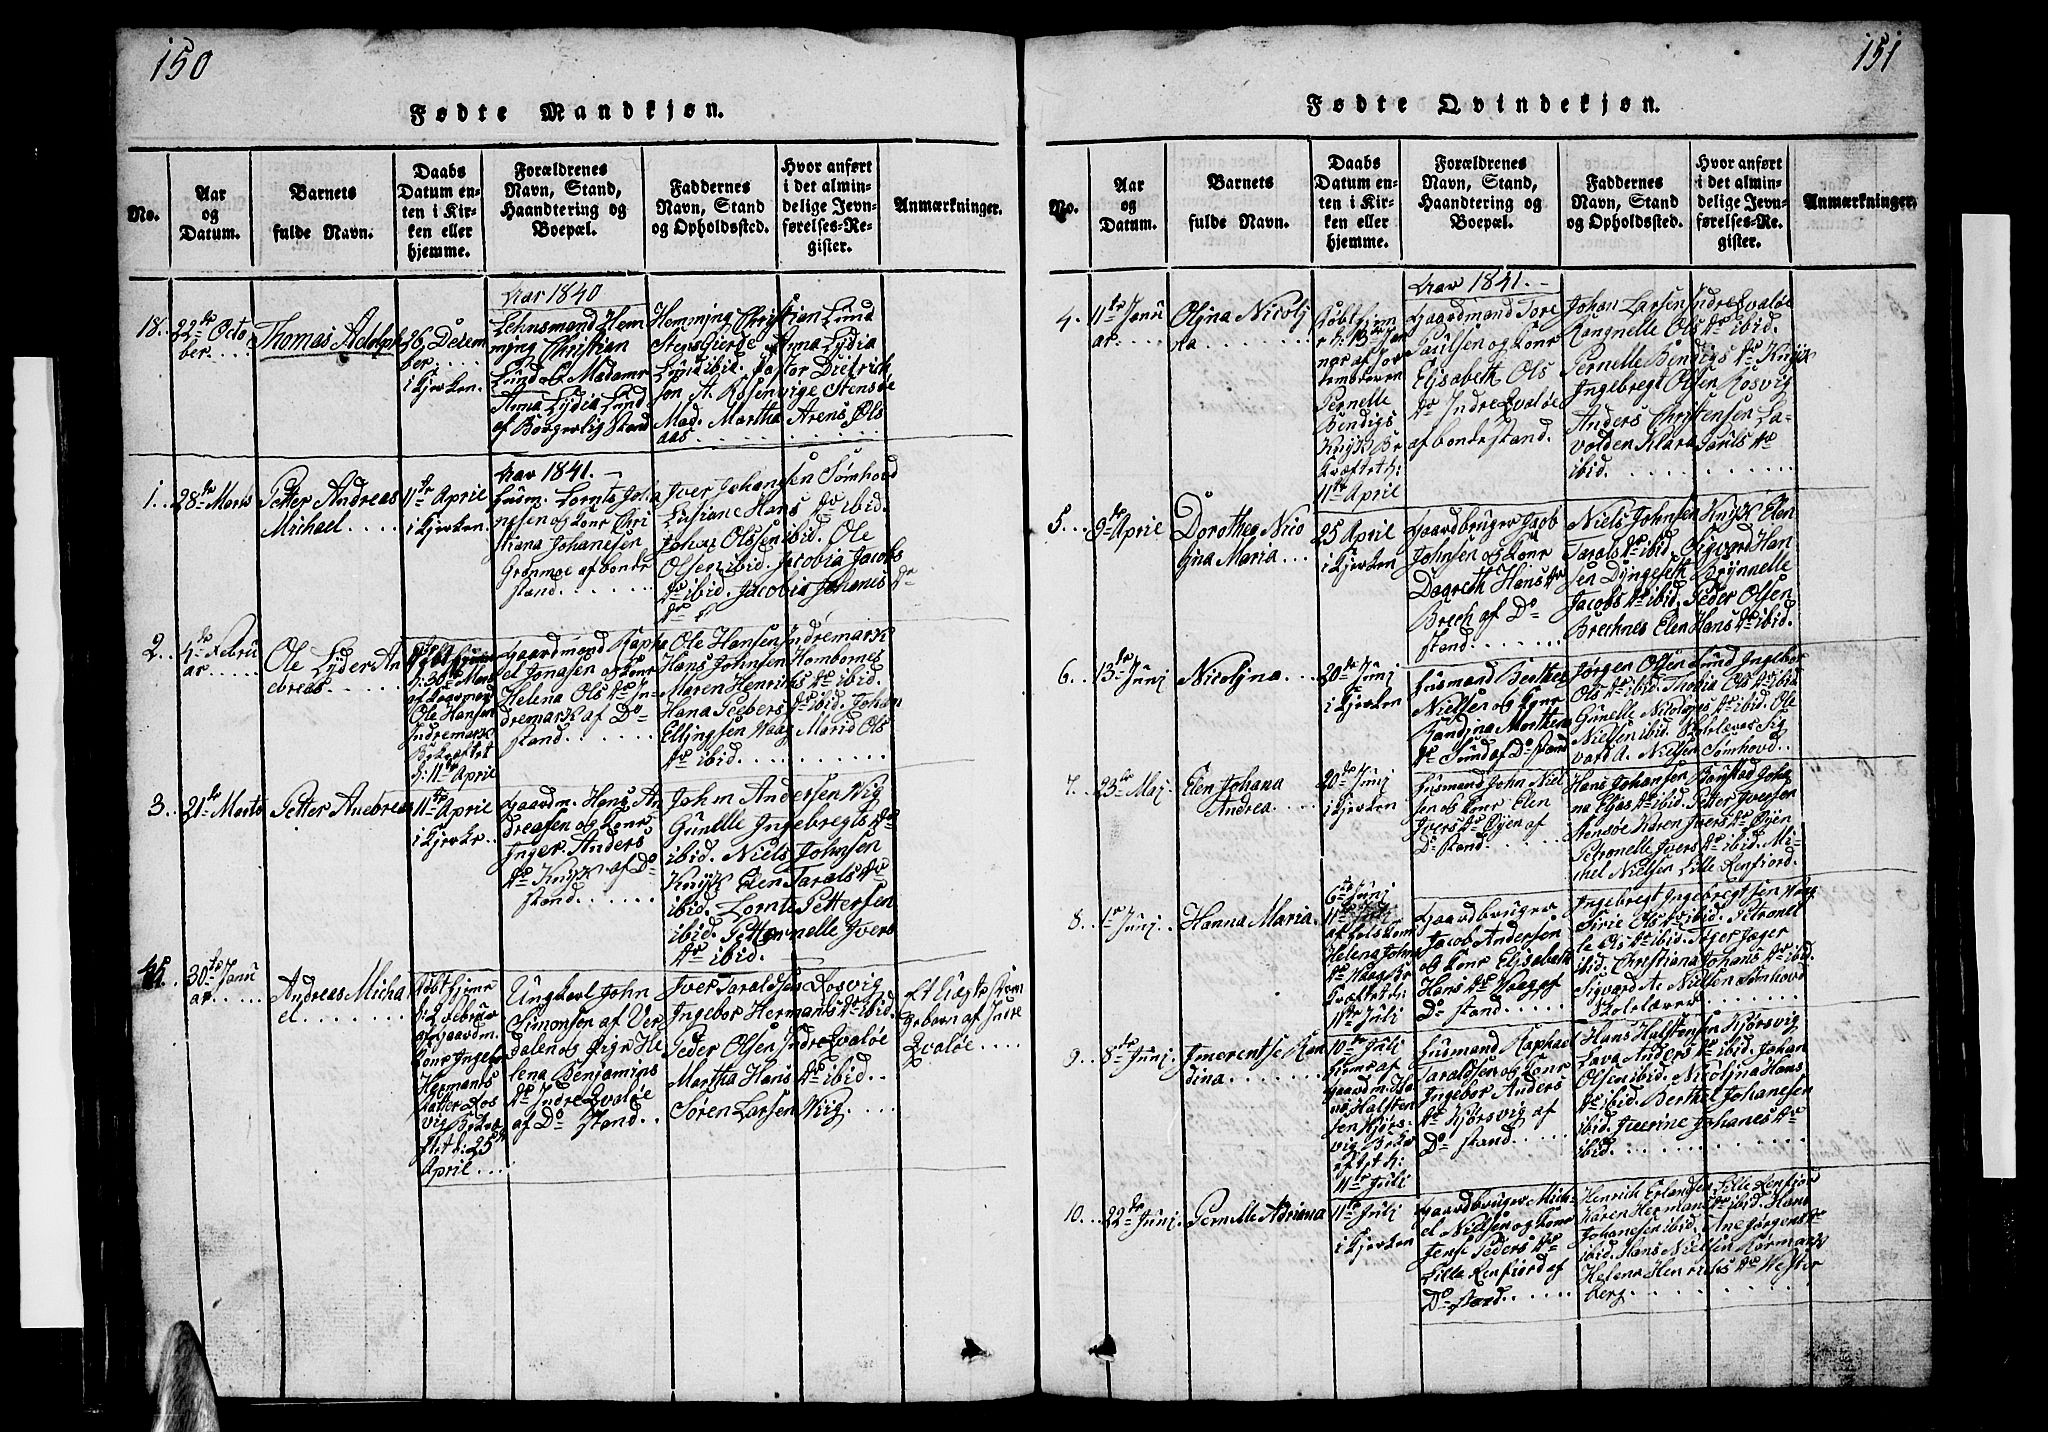 150
Fødte Mandkjøn.
No.
Aar
og
Datum.
Barnets
fulde Navn.
Daabs
Datum en-
ten i Kir-
ken eller
hjemme.
Forældrenes
Navn, Stand,
Haandtering og
Boepæl.
Faddernes
Navn, Stand
og Opholdssted.
Hvor anført
i det almin-
delige Jevn-
førelses-Re-
gister.
Anmærkninger.
18.
22de Octo
ber
Thomas Adolph
26 Decem
ber
i Kjerken.
Aar 1840
Lehnsmand Hem
ming Christian
Lund & Madame
Anna Lydia Lund
af Borgerlig Stand
Hemming Christian Lund
Anna Lydia
Lund ibid. Pastor Dietrich
son A. Rosenvige Stensøe
Mad. Martha Arens Ols
aas
1.
28de Marts
Petter Andreas
Michael
11te April
i Kjerken.
Aar 1841.
Husm. Lornts Joha
nesen og Kone Chri
stiana Johanesen
Grønmoe af bonde
stand.
Iver Johansen Sømhovd
Lusiane Hans Dr ibid.
Johan Olssen ibid. Ole
Olsen ibid. Jacobia Jacobs
Dr ibid. Jacobia Johanes Dr
2.
4de Febru
ar
Ole Lyder An
dreas
Ole Hansen
Indremark
11te April
Gaardmand Rapha
el Jonasen og Kone
Helena Ols Dr In
dremark af Do
stand.
Ole Hansen Indremark
Hans Johnsen Hombornes
Maren Henrichs Dr ibid.
Hana Peebers Dr ibid. Johan
Ellingsen Waag Marid Ols
Dr ibid.
3.
21de Marts
Petter Andreas
11te April
i Kjerke.
Gaardm. Hans An
dreasen og Kone
Inger Anders
Dr Knyk af Do
stand.
John Andersen Wig
Gunelle Ingebregts Dr
ibid. Niels Johnsen
Knyk Elen Tarals Dr
ibid. Lornts Pettersen
ibid. Petternelle Ivers
Dr ibid.
30te Janu
ar
Andreas Micha
el
Døbt hjeme
d. 2 Februar
af Gaardm.
Kone Ingebor
Hermands
Datter Ros
vig
25de
April
Ungkarl John
Simonsen af Ver
dalen og Pige He
lena Benjamins
Dr Indre Qvaløe
af Do stand.
Iver Taraldsen Rosvig
Ingebor Hermans Dr ibid.
Peder Olsen Indre Qvaløe
Martha Hans Dr ibid.
Søren Larsen Wiig.
et Uægte
Barn af Indre
Qvaløe
151
Fødte Qvindekjøn.
No.
Aar
og
Datum.
Barnets
fulde Navn.
Daabs
Datum en-
ten i Kir-
ken eller
hjemme.
Forældrenes
Navn, Stand,
Haandtering og
Boepæl.
Faddernes
Navn, Stand
og Opholdssted.
Hvor anført
i det almin-
delige Jevn-
førelses-Re-
gister.
Anmærkninger.
4.
11te Janu
ar
Oljna Nicolj
na
Døbt hjem
d. 13 Jan
uar af Jor
demoderen
Pernelle
Bendigs
Knyk Be
kræftet d:
11te April
Aar 1841.
Gaardmand Tore
Paulsen og Kone
Elisabeth Ols
Dr Indre Qvaløe
af bondestand.
Johan Larsen Indre Qvaløe
Rangnelle Ols Dr ibid.
Pernelle Bendigs Dr Knyk
Ingebregt Olsen Rosvig
Anders Christensen La-
volden Klara Pauls Dr
ibid.
5.
9de April
Dorothea Nico
ljna Maria
25 April
i Kjerken
Gaardbruger Jacob
Johnsen og Kone
Dagreth Hans Dr
Brech af Do
stand
Niels Johnsen Knyk Elen
Tarals Dr ibid. Sigvard Han
sen Dyngeseth Brynnelle
Jacobs Dr ibid. Peder Olsen
Brechnes Elen Hans Dr ibid.
6.
13de Junj
Nicoljna
20de Junj
i Kjerken
Husmand Berthel
Nielsen og Kone
Randina Morthens
Dr Sund af Do stand
Jørgen Olsen Lund Ingebor
Ols Dr ibid. Thobia Ols Dr ibid
Gunelle Nicolays Dr ibid. Ole
Nielsen ibid. Skolelærer Sig
vard A. Nielsen Sømhovd.
7.
23de Maj
Elen Johana
Andrea
20de Junj
i Kjerken
Husmand John Niel
sen og Kone Elen
Ivers Dr Øyen af
Do stand
Hans Johansen Baustad Joha
na Elias Dr ibid. Petter Iversen
Stensøe Karen Ivers Dr Øyen
Petronelle Ivers Dr ibid. Mi-
chel Nielsen Lille Renfiord.
8.
1te Junj
Hanna Maria
6te Junj
Helena Johns
Dr Waag Be
kræftet d:
11te Juli
Gaardbruger
Jacob Andersen
og Kone Elisabeth
Hans Dr Waag af
Do stand
Ingebregt Ingebregtsen Waag
Sirie Ols Dr ibid. Petronel
le Ols Dr ibid. Peger Jæger
ibid. Christiana Johans Dr ibid.
Sigvard A. Nielsen Sømhovd
Skolelærer
9.
8de Junj
Imerentse Ran
dina
10de Juli
hjeme af
Gaardm. Ha
ns Halsten
sen Kjørs
vig Bekræ
eftet d:
11te Juli
Husmand Raphael
Taraldsen og Kone
Ingebor Anders
Dr Kjørsvig af
Do stand
Hans Halstensen Kjørsvig
Lava Anders Dr ibid. Johan
Olsen ibid. Nicolina Hans
Dr ibid. Berthel Johanesen
ibid. Iverine Johanes Dr
ibid.
10.
22de Junj
Pernelle Adriana
11te Juli
i Kjerken
Gaardbruger Mich-
el Nielsen og Kone
Jense Peders Dr
Lille Renfiord af
Do stand
Henrich Erlandsen Lille Renfior
Karen Hermans Dr ibid. Hans
Johanesen ibid. Ane Jørgens Dr
ibid. Hans Nielsen Rørmark
Helena Henrichs Dr Wester
berg.